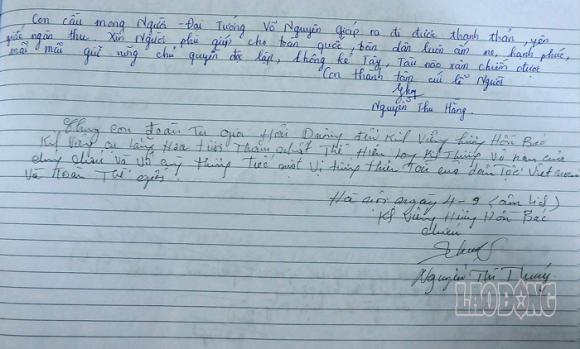 Con cầu mong Người - Đại Tướng Võ Nguyên Giáp ra đi được thanh thản, yên
giấc ngàn thu. Xin Người phù giúp cho toàn quốc, toàn dân luôn ấm no, hạnh phúc,
mãi mãi giữ vững chủ quyền độc lập, không kẻ Tây, Tàu nào xâm chiếm được
Con thành tâm cúi lễ Người
Nguyễn Thu Hằng.
Chúng con đoàn Từ Gia Hải Dương đến Kính Viếng hương hồn Bác
Kính Viếng
chúng cháu và Vô cùng thương Tiếc một Vị tướng thiên Tài của dân tộc Việt nam
Và toàn Thế giới
Hà nội ngày 4-9 (âm lịch)
Kính Viếng Hương Hồn Bác
cháu
Nguyễn Thị Thuý
LAO ĐỘNG